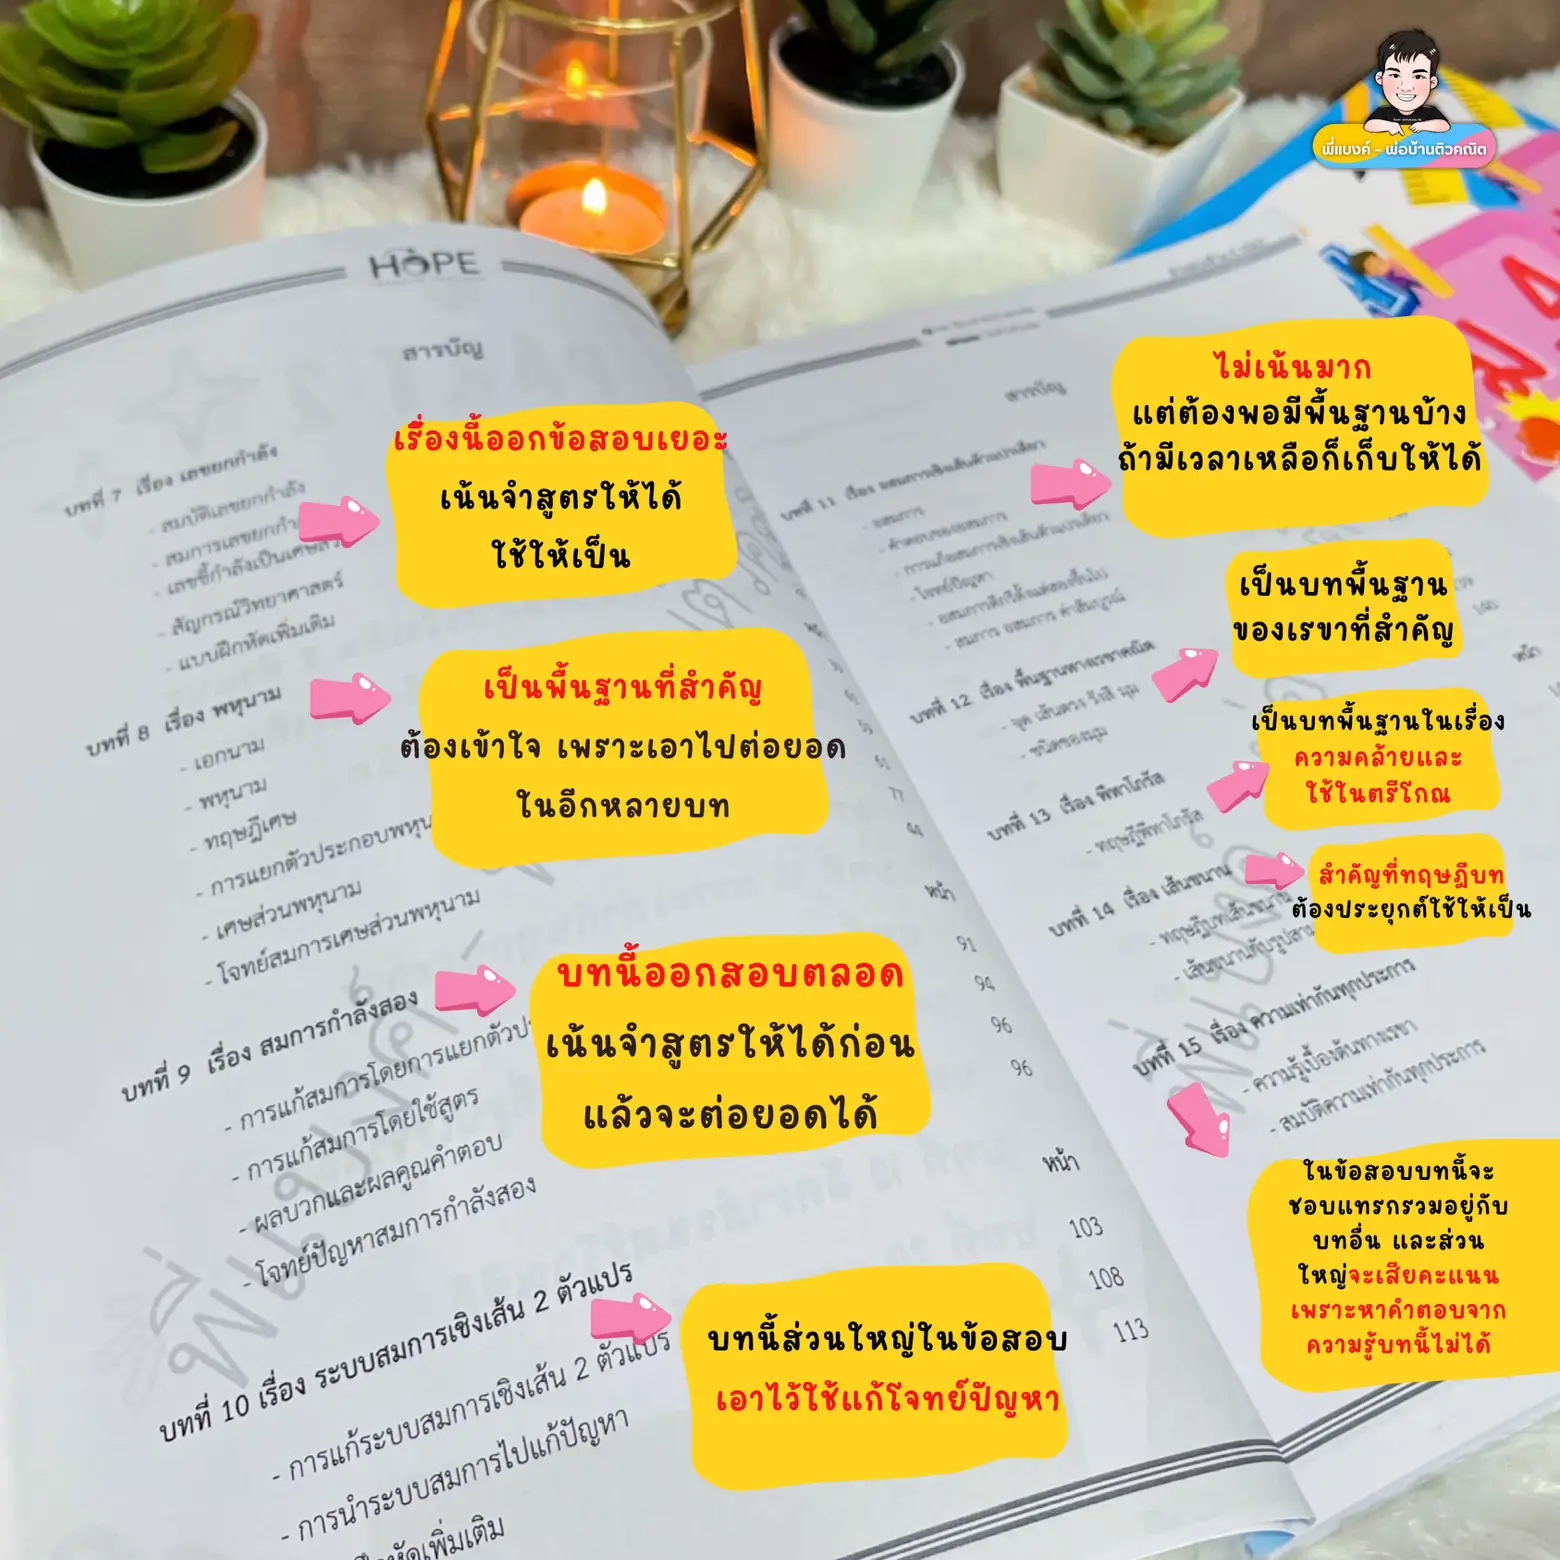 พี่แบงค์ - พ่อบ้านติวคณิต
HOPE
สารบัญ
บทที่ 7 เรื่อง เลขยกกำลัง
- สมบัติเลขยกกำลัง
- สมการเลขยกกำ
- เลขชี้กำลังเป็นเศษส่ว
- สัญกรณ์วิทยาศาสตร์
- แบบฝึกหัดเพิ่มเติม
เรื่องนี้ออกข้อสอบเยอะ
เน้นจำสูตรให้ได้
ใช้ให้เป็น
บทที่ 8 เรื่อง พหุนาม
- เอกนาม
- พหุนาม
- ทฤษฎีเศษ
- การแยกตัวประกอบพหุน
- เศษส่วนพหุนาม
- โจทย์สมการเศษส่วนพหุนาม
เป็นพื้นฐานที่สำคัญ
ต้องเข้าใจ เพราะเอาไปต่อยอด
ในอีกหลายบท
61
77
หน้า
บทที่ 9 เรื่อง สมการกำลังสอง
- การแก้สมการโดยการแยกตัวปร
- การแก้สมการโดยใช้สูตร
- ผลบวกและผลคูณคำตอบ
- โจทย์ปัญหาสมการกำลังสอง
91
94
96
96
บทนี้ออกสอบตลอด
เน้นจำสูตรให้ได้ก่อน
แล้วจะต่อยอดได้
หน้า
บทที่ 10 เรื่อง ระบบสมการเชิงเส้น 2 ตัวแปร
- การแก้ระบบสมการเชิงเส้น 2 ตัวแปร
- การนำระบบสมการไปแก้ปัญหา
หัดเพิ่มเติม
103
108
113
บทนี้ส่วนใหญ่ในข้อสอบ
เอาไว้ใช้แก้โจทย์ปัญหา
สารบัญ
บทที่ 11 เรื่อง อสมการเชิงเส้นตัวแปรเดียว
- อสมการ
- คำตอบของอสมการ
- การแก้อสมการเชิงเส้นตัวแปรเดียว
- โจทย์ปัญหา
- อสมการดีกรีตั้งแต่สองขึ้นไป
- สมการ อสมการ ค่าสัมบูรณ์
ไม่เน้นมาก
แต่ต้องพอมีพื้นฐานบ้าง
ถ้ามีเวลาเหลือก็เก็บให้ได้
หน้า
บทที่ 12 เรื่อง พื้นฐานทางเรขาคณิต
- จุด เส้นตรง รังสี มุม
- ชนิดของมุม
เป็นบทพื้นฐาน
ของเรขาที่สำคัญ
บทที่ 13 เรื่อง พีทาโกรัส
- ทฤษฎีพีทาโกรัส
เป็นบทพื้นฐานในเรื่อง
ความคล้ายและ
ใช้ในตรีโกณ
บทที่ 14 เรื่อง เส้นขนาน
- ทฤษฎีบทเส้นขนาน
- เส้นขนานกับรูปสาม
สำคัญที่ทฤษฎีบท
ต้องประยุกต์ใช้ให้เป็น
บทที่ 15 เรื่อง ความเท่ากันทุกประการ
- ความรู้เบื้องต้นทางเรขา
- สมบัติความเท่ากันทุกประการ
ในข้อสอบบทนี้จะ
ชอบแทรกรวมอยู่กับ
บทอื่น และส่วน
ใหญ่จะเสียคะแนน
เพราะหาคำตอบจาก
ความรู้บทนี้ไม่ได้